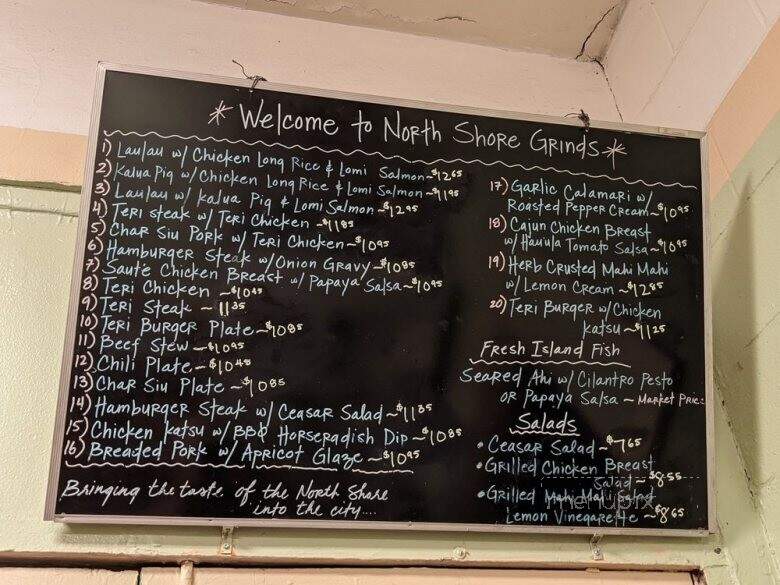 * Welcome to North Shore Grinds *
1) Laulau w/ Chicken Long Rice & Lomi Salmon ~ $12⁶⁵
2) Kalua Pig w/ Chicken Long Rice & Lomi Salmon ~ $11⁹⁵
3) Laulau w/ Kalua Pig & Lomi Salmon ~ $12⁹⁵
4) Teri Steak w/ Teri Chicken ~ $11⁸⁵
5) Char Siu Pork w/ Teri Chicken ~ $10⁹⁵
6) Hamburger Steak w/ Onion Gravy ~ $10⁸⁵
7) Saute Chicken Breast w/ Papaya Salsa ~ $10⁹⁵
8) Teri Chicken ~ $10⁴⁵
9) Teri Steak ~ 11³⁵
10) Teri Burger Plate ~ $10⁸⁵
11) Beef Stew ~ $10⁹⁵
12) Chili Plate ~ $10⁴⁵
13) Char Siu Plate ~ $10⁸⁵
14) Hamburger Steak w/ Ceasar Salad ~ $11³⁵
15) Chicken Katsu w/ BBQ Horseradish Dip ~ $10⁸⁵
16) Breaded Pork w/ Apricot Glaze ~ $10⁹⁵
Bringing the taste of the North Shore
into the city....
17) Garlic Calamari w/
Roasted Pepper Cream ~ $10⁹⁵
18) Cajun Chicken Breast
w/ Hauula Tomato Salsa ~ $10⁹⁵
19) Herb Crusted Mahi Mahi
w/ Lemon Cream ~ $12⁸⁵
20) Teri Burger w/ Chicken
Katsu ~ $11²⁵
Fresh Island Fish
Seared Ahi w/ Cilantro Pesto
or Papaya Salsa ~ Market Price
Salads
• Ceasar Salad ~ $7⁶⁵
• Grilled Chicken Breast
Salad ~ $8.⁵⁵
• Grilled Mahi Mahi Salad
Lemon Vinegarette ~ $8⁶⁵